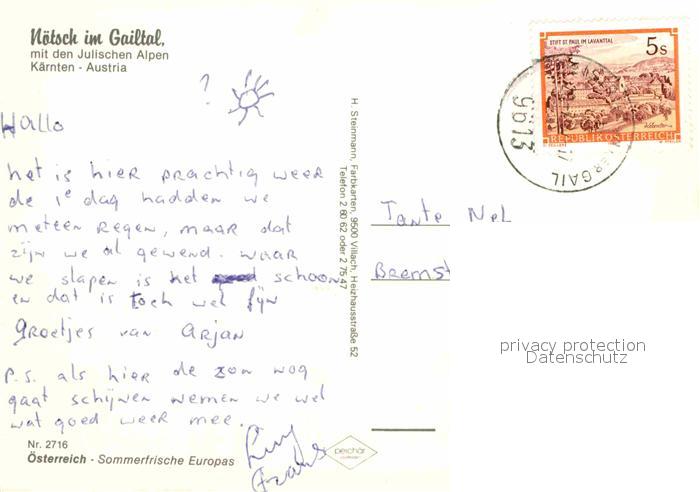 Nötsch im Gailtal,
mit den Julischen Alpen
Kärnten - Austria
?
Hallo
het is hier prachtig weer
de 1e dag hadden we
meteen regen, maar dat
zijn we al gewend. waar
we slapen is het schoon
en dat is toch wel fijn
groetjes van Arjan
P.S. als hier de zon nog
gaat schijnen nemen we wel
wat goed weer mee.
Nr. 2716
Österreich - Sommerfrische Europas
perchar
H. Steinmann, Farbkarten, 9500 Villach, Heizhausstraße 52
Telefon 2 60 62 oder 2 75 47
STIFT ST. PAUL IM LAVANTTAL
5s
Kärnten
REPUBLIK ÖSTERREICH
9613
GAIL
Tante Nel
Bremst
privacy protection
Datenschutz